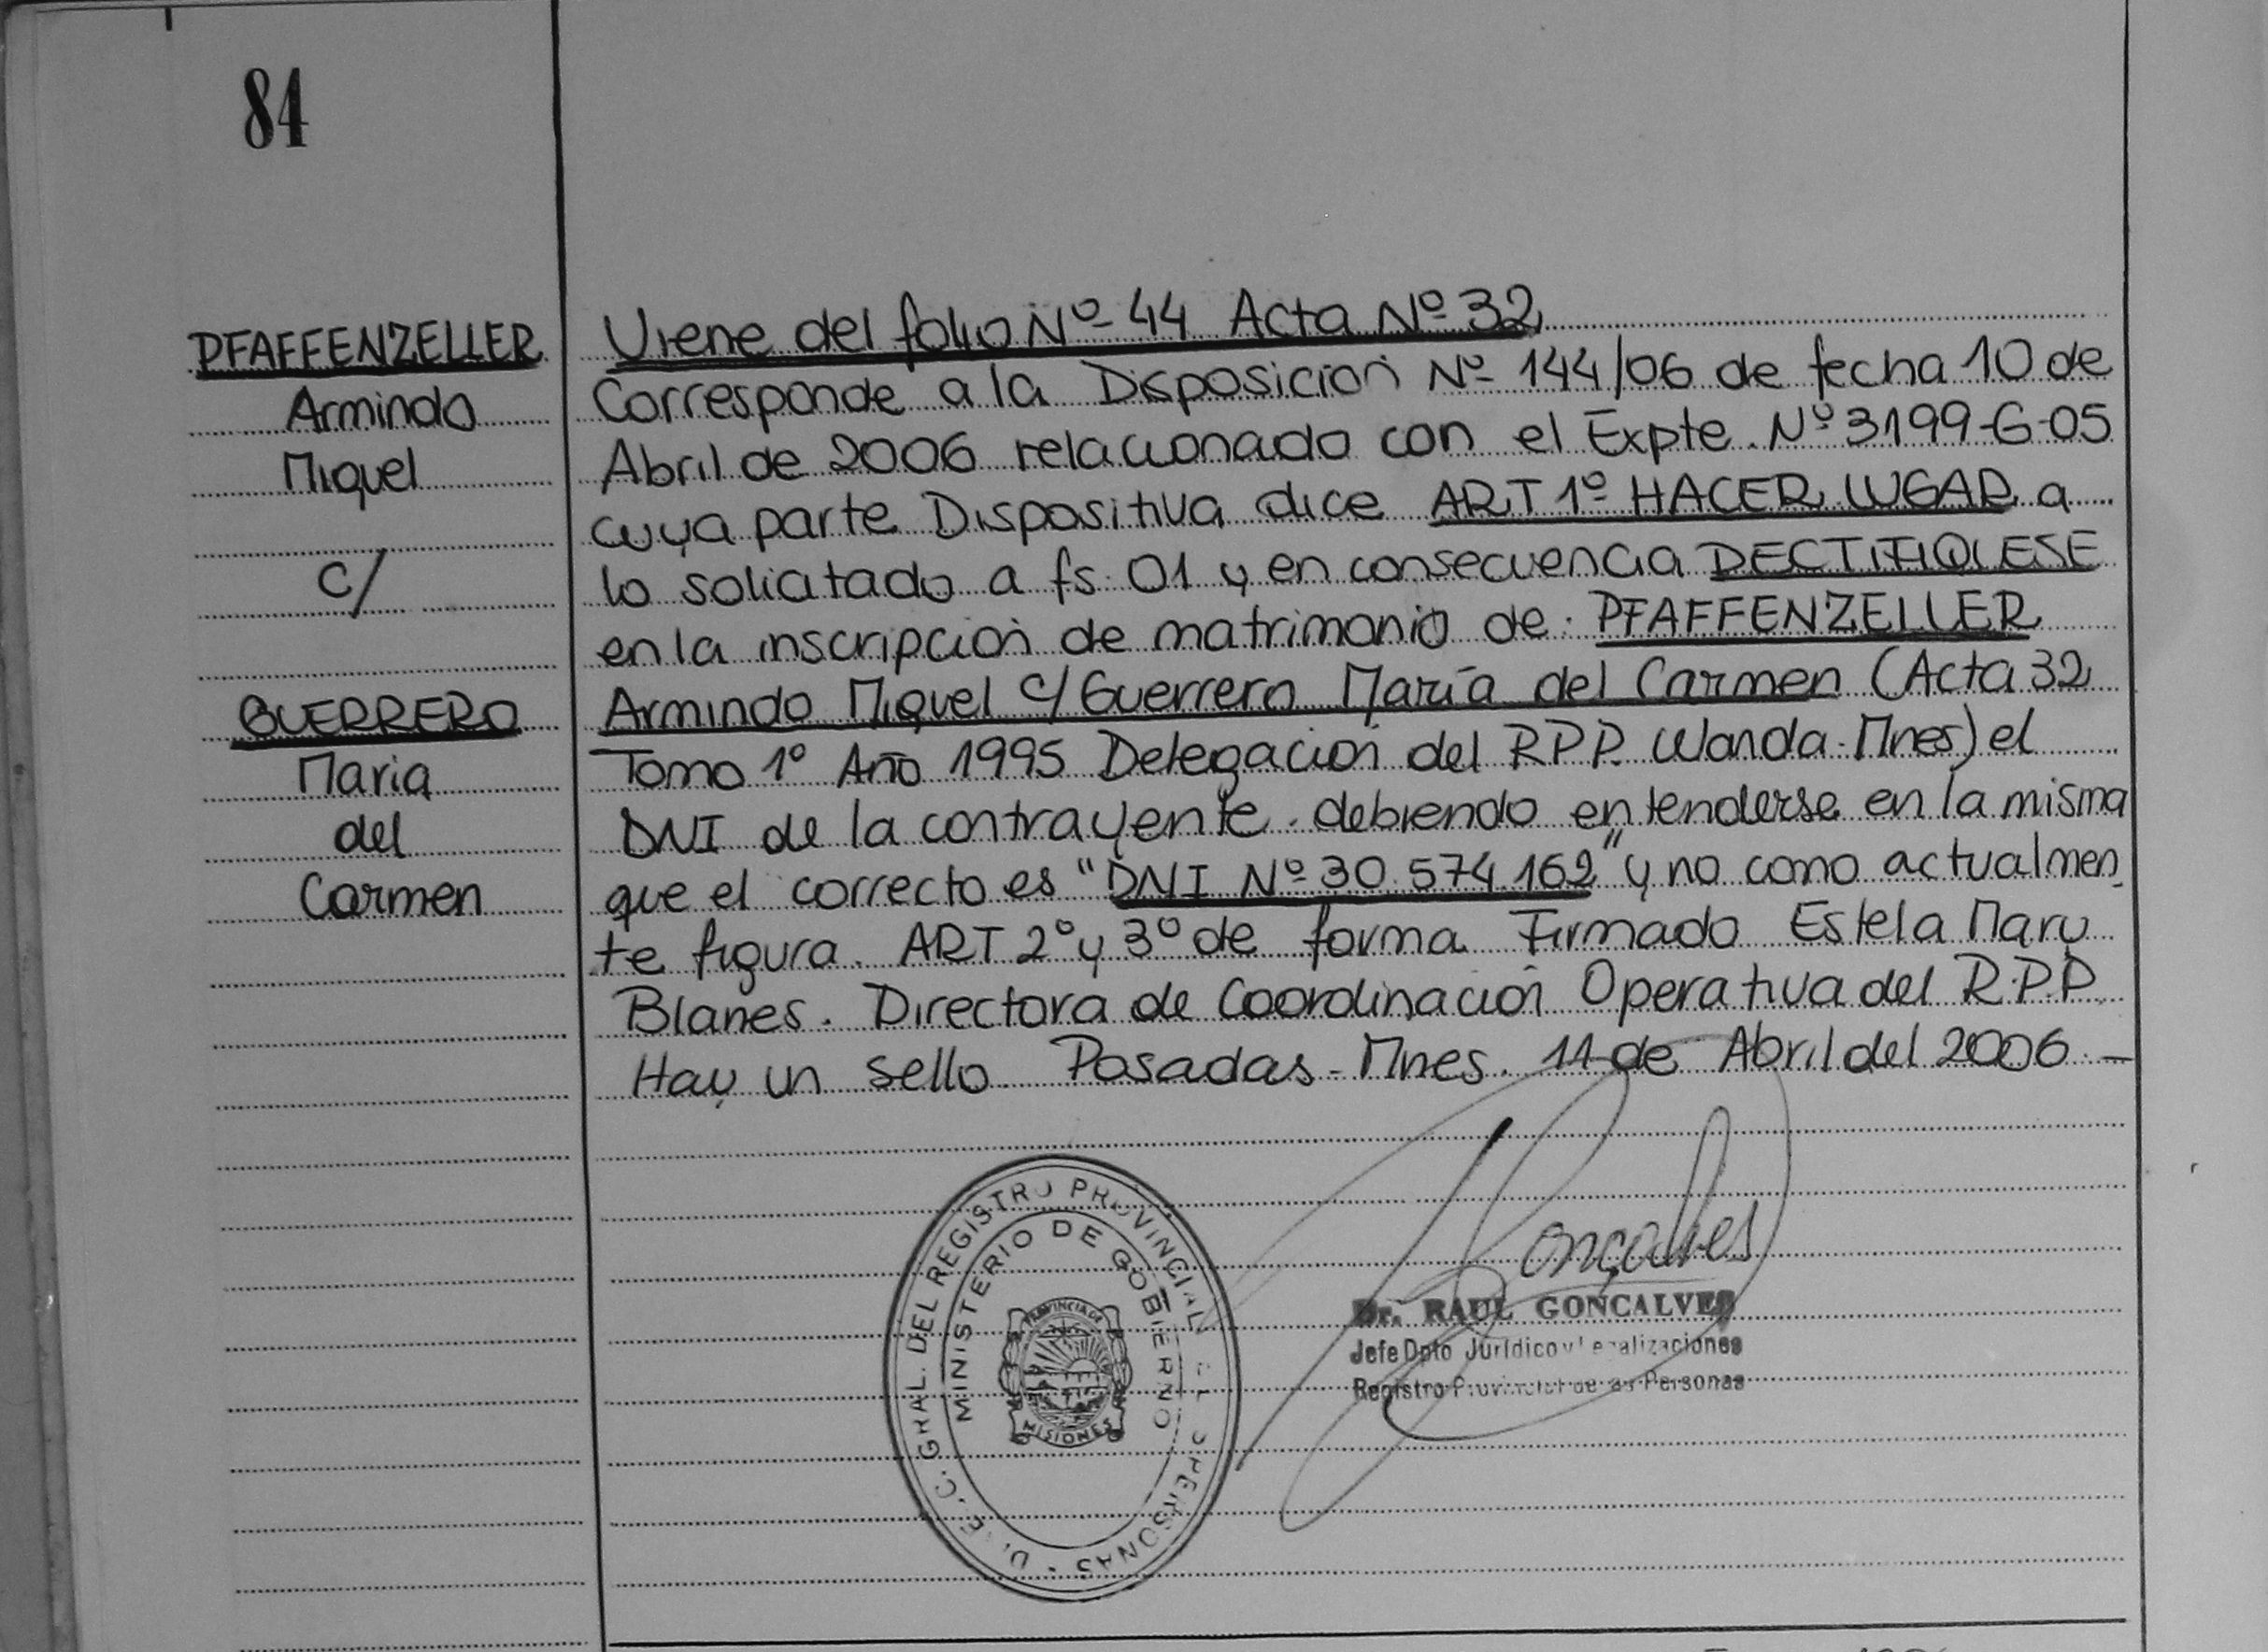 84
PFAFFENZELLER
Armindo
Miguel
C/
GUERRERO
Maria
del
Carmen
Viene del folio Nº 44 Acta Nº 32
Corresponde a la Disposición Nº 144/06 de fecha 10 de
Abril de 2006 relacionado con el Expte. Nº 3199-G-05
cuya parte Dispositiva dice ART 1º HACER LUGAR a
lo solicitado a fs. 01 y en consecuencia RECTIFIQUESE
en la inscripción de matrimonio de: PFAFFENZELLER
Armindo Miguel C/ Guerrero María del Carmen (Acta 32
Tomo 1º Año 1995 Delegación del RPP. Wanda-Mnes) el
DNI de la contrayente. debiendo entenderse en la misma
que el correcto es "DNI Nº 30.574.162" y no como actualmen
te figura. ART 2º y 3º de forma Firmado Estela Mary
Blanes. Directora de Coordinación Operativa del R.P.P.
Hay un sello. Posadas-Mnes. 11 de Abril del 2006.-
GRAL. DEL REGISTRO PROVINCIAL PERSONAS
MINISTERIO DE GOBIERNO
PROVINCIA DE
MISIONES
Gonçalves
Dr. RAUL GONCALVES
Jefe Dpto Jurídico y Legalizaciones
Registro Provincial de las Personas